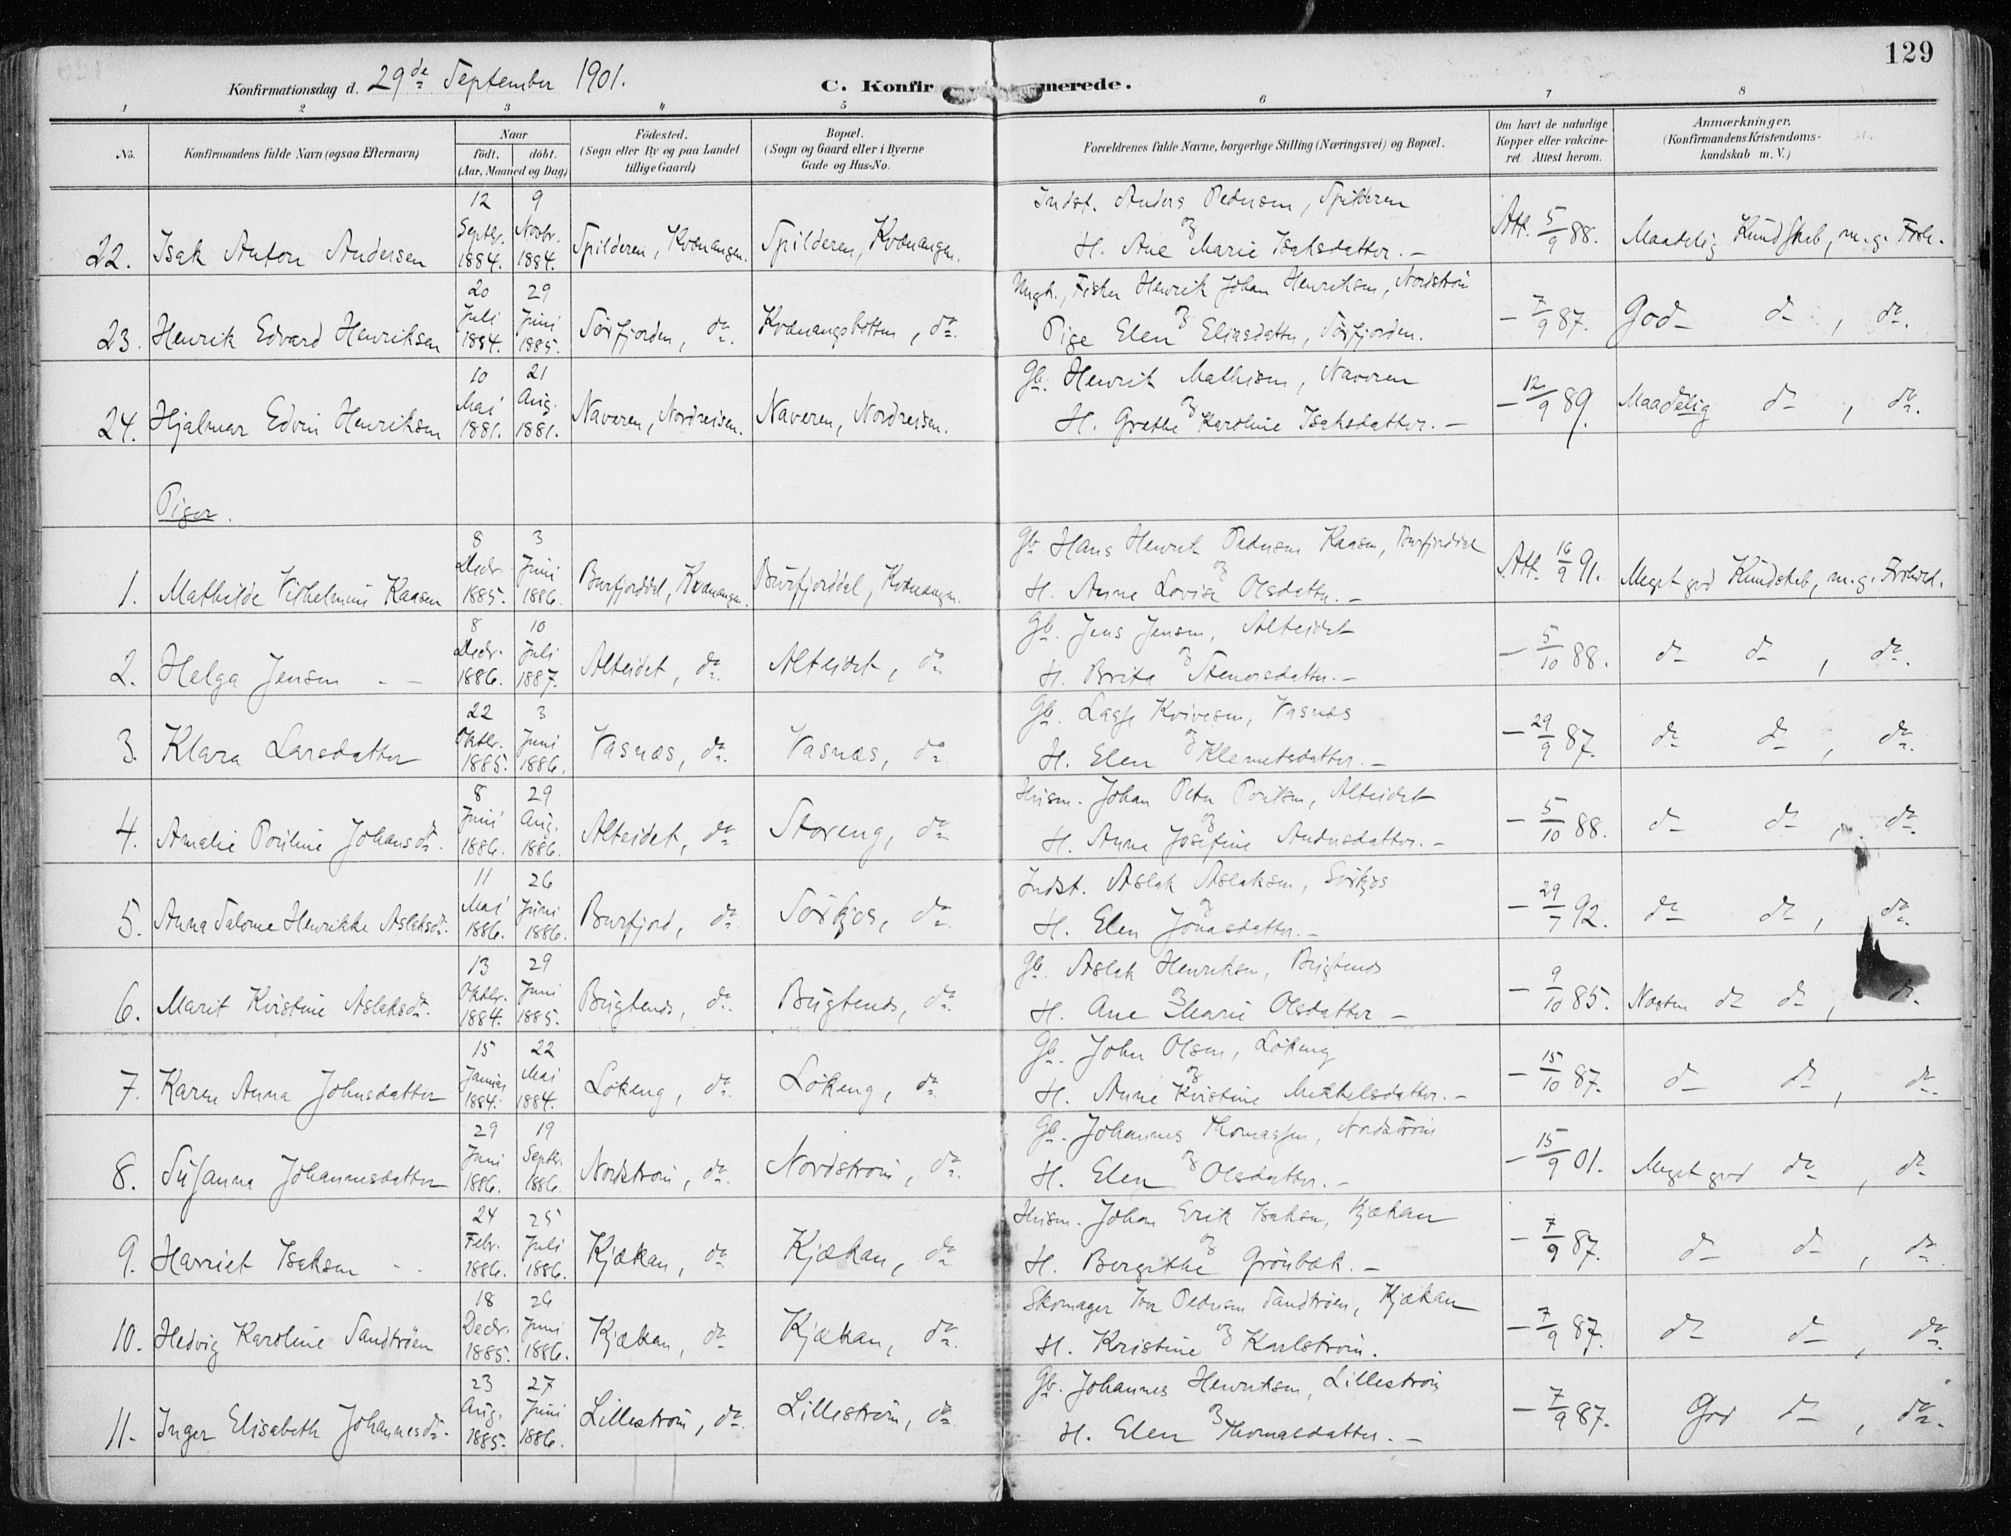 129
Konfirmationsdag d. 29de September 1901.
C. Konfirmerede.
1 2 3 4 5 6 7 8
No.
Konfirmandens fulde Navn (ogsaa Efternavn)
Naar
født. døbt.
(Aar, Maaned og Dag)
Fødested.
(Sogn eller By og paa Landet
tillige Gaard)
Bopæl.
(Sogn og Gaard eller i Byerne
Gade og Hus-No.
Forældrenes fulde Navne, borgerlige Stilling (Næringsvei) og Bopæl.
Om havt de naturlige
Kopper eller vakcine-
ret. Attest herom.
Anmærkninger.
(Konfirmandens Kristendoms-
kundskab m. V.)
22. Isak Anton Andersen
12 Septbr. 1884. 9 Novbr. 1884.
Spilderen, Kvænangen. Spilderen, Kvænangen.
Indst. Anders Pedersen, Spilderen
og
H. Ane Marie Isaksdatter. –
Att. 5/9 88. Maadelig Kundskab, m. g. Forh.
23. Henrik Edvard Henriksen
20 Juli 1884. 29 Juni 1885.
Sørfjorden, do. Kvænangsbotten, do.
Ungk., Fisker Henrik Johan Henriksen, Nordstrøm
og
Pige Elen Eliasdatter, Sørfjorden.
– 7/9 87. God do, do.
24. Hjalmar Edvin Henriksen
10 Mai 1881. 21 Aug. 1881.
Naveren, Nordreisen. Naveren, Nordreisen.
Gb. Henrik Mathisen, Naveren
og
H. Grethe Karoline Isaksdatter. –
– 12/9 89. Maadelig do, do.
Piger.
1. Mathilde Vilhelmine Kaasen
8 Decbr. 1885. 3 Juni 1886.
Burfjorddal, Kvænangen. Burfjorddal, Kvænangen.
Gb. Hans Henrik Pedersen Kaasen, Burfjorddal
og
H. Anne Lovise Olsdatter. –
Att. 16/9 91. Meget god Kundskab, m. g. Forhold.
2. Helga Jensen – –
8 Decbr. 1886. 10 Juli 1887.
Alteidet, do. Alteidet, do
Gb. Jens Jensen, Alteidet
og
H. Brita Stenersdatter. –
– 5/10 88. do do, do.
3. Klara Larsdatter
22 Oktbr. 1885. 3 Juni 1886.
Vasnæs, do. Vasnæs, do
Gb. Lasse Kvivesen, Vasnæs
og
H. Elen Klemetsdatter. –
– 29/9 87. do do, do.
4. Amalie Pouline Johansdr.
8 Juni 1886. 29 Aug. 1886.
Alteidet, do Storeng, do
Husm. Johan Peter Poulsen, Alteidet
og
H. Anna Josefine Andersdatter. –
– 5/10 88. do do, do.
5. Anna Salome Henrikke Aslaksdr.
11 Mai 1886. 26 Juni 1886.
Burfjord, do Sørkjos, do.
Indst. Aslak Aslaksen, Sørkjos
og
H. Elen Jonasdatter. –
– 29/7 92. do do, do.
6. Marit Kristine Aslaksdr.
13 Oktbr. 1884. 29 Juni 1885.
Bugtenes, do. Bugtenes, do.
Gb. Aslak Henriksen, Bugtenes
og
H. Ane Marie Olsdatter. –
– 9/10 85. Næsten do do, do.
7. Karen Anna Johnsdatter
15 Januar 1884. 22 Mai 1884.
Løkeng, do. Løkeng, do.
Gb. John Olsen, Løkeng
og
H. Anne Kristine Mikkelsdatter. –
– 15/10 87. do do, do.
8. Susanna Johannesdatter
29 Juni 1886. 19 Septbr. 1886.
Nordstrøm, do. Nordstrøm, do.
Gb. Johannes Thomassen, Nordstrøm
og
H. Elen Olsdatter. –
– 15/9 01. Meget god do, do.
9. Harriet Isaksen – –
24 Febr. 1886. 25 Juli 1886.
Kjækan, do Kjækan, do
Husm. Johan Erik Isaksen, Kjækan
og
H. Bergithe Grønbæk. –
– 7/9 87. do do, do.
10. Hedvig Karoline Sandtrøen
18 Decbr. 1885. 26 Juni 1886.
Kjækan, do Kjækan, do.
Skomager Iver Pedersen Sandtrøen, Kjækan
og
H. Kristine Karlstrøm.
– 7/9 87. do do, do.
11. Inger Elisabeth Johannesdr.
23 Aug. 1885. 27 Juni 1886.
Lillestrøm, do Lillestrøm, do.
Gb. Johannes Henriksen, Lillestrøm
og
H. Elen Thomasdatter. –
– 7/9 87. God do, do.